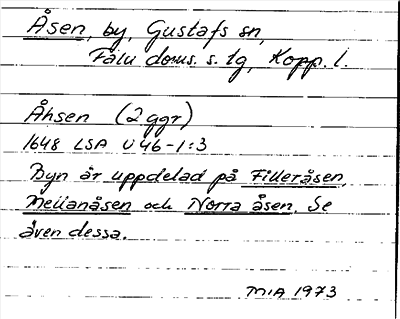 Åsen, by, Gustafs sn,
Falu doms. s. tg, Kopp. l.
Åhsen (2 ggr)
1648 LSA U46-1:3
Byn är uppdelad på Filleråsen,
Mellanåsen och Norra åsen. Se
även dessa.
MIA 1973